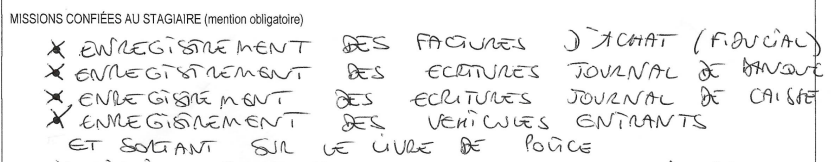 MISSIONS CONFIÉES AU STAGIAIRE (mention obligatoire)
* ENREGISTREMENT DES FACTURES D'ACHAT (FIDUCIAL)
* ENREGISTREMENT DES ECRITURES JOURNAL DE BANQUE
* ENREGISTREMENT DES ECRITURES JOURNAL DE CAISSE
* ENREGISTREMENT DES VEHICULES ENTRANTS
ET SORTANT SUR LE LIVRE DE POLICE